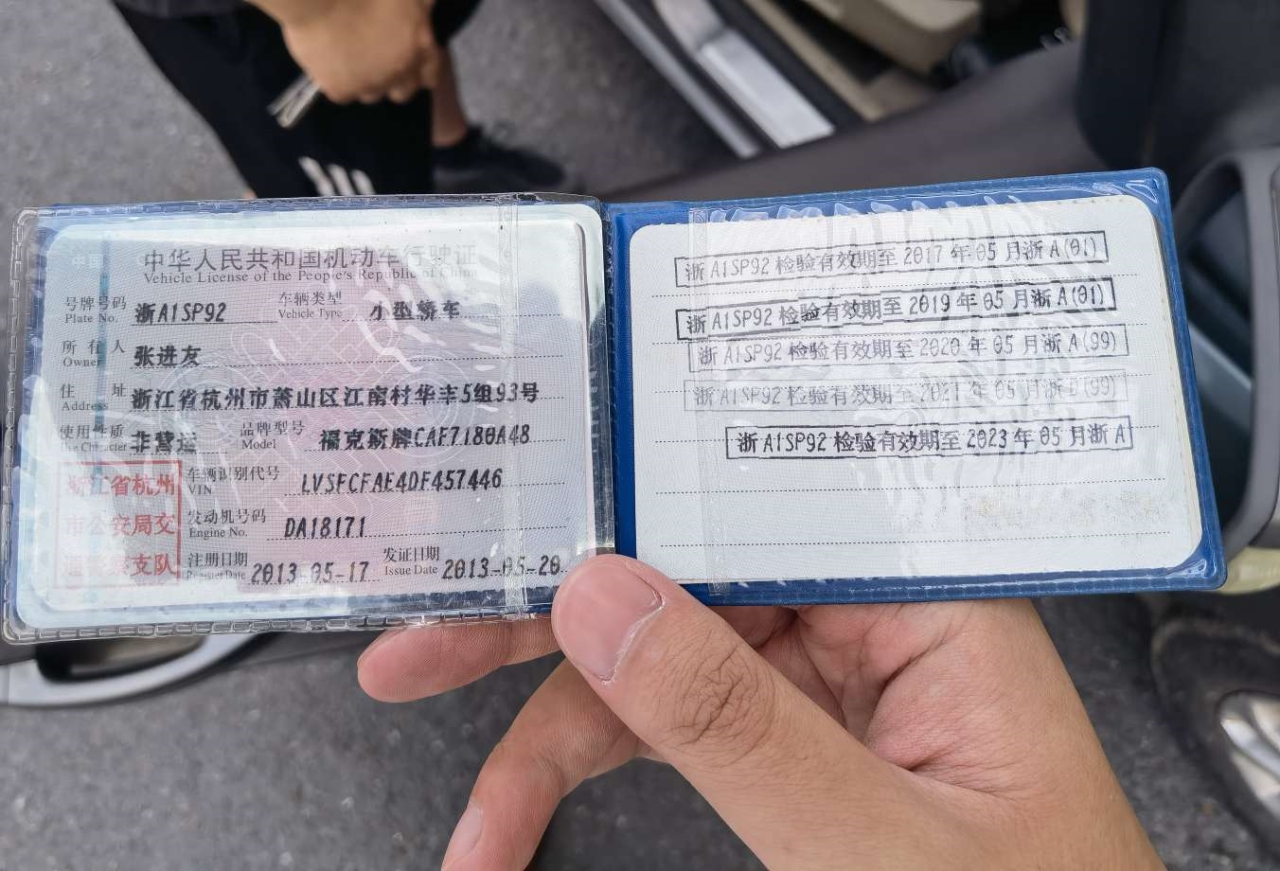 中华人民共和国机动车行驶证
Vehicle License of the People's Republic of China
号牌号码 浙A1SP92 车辆类型 小型轿车
Plate No. Vehicle Type
所有人 张进友
Owner
住址 浙江省杭州市萧山区江南村华丰5组93号
Address
使用性质 非营运 品牌型号 福克斯牌CAF7180A48
Use Character Model
浙江省杭州
市公安局交
通警察支队
车辆识别代号 LVSFCFAE4DF457446
VIN
发动机号码 DA18171
Engine No.
注册日期 2013-05-17 发证日期 2013-05-20
Register Date Issue Date
浙A1SP92检验有效期至2017年05月浙A(01)
浙A1SP92检验有效期至2019年05月浙A(01)
浙A1SP92检验有效期至2020年05月浙A(99)
浙A1SP92检验有效期至2021年05月浙D(99)
浙A1SP92检验有效期至2023年05月浙A